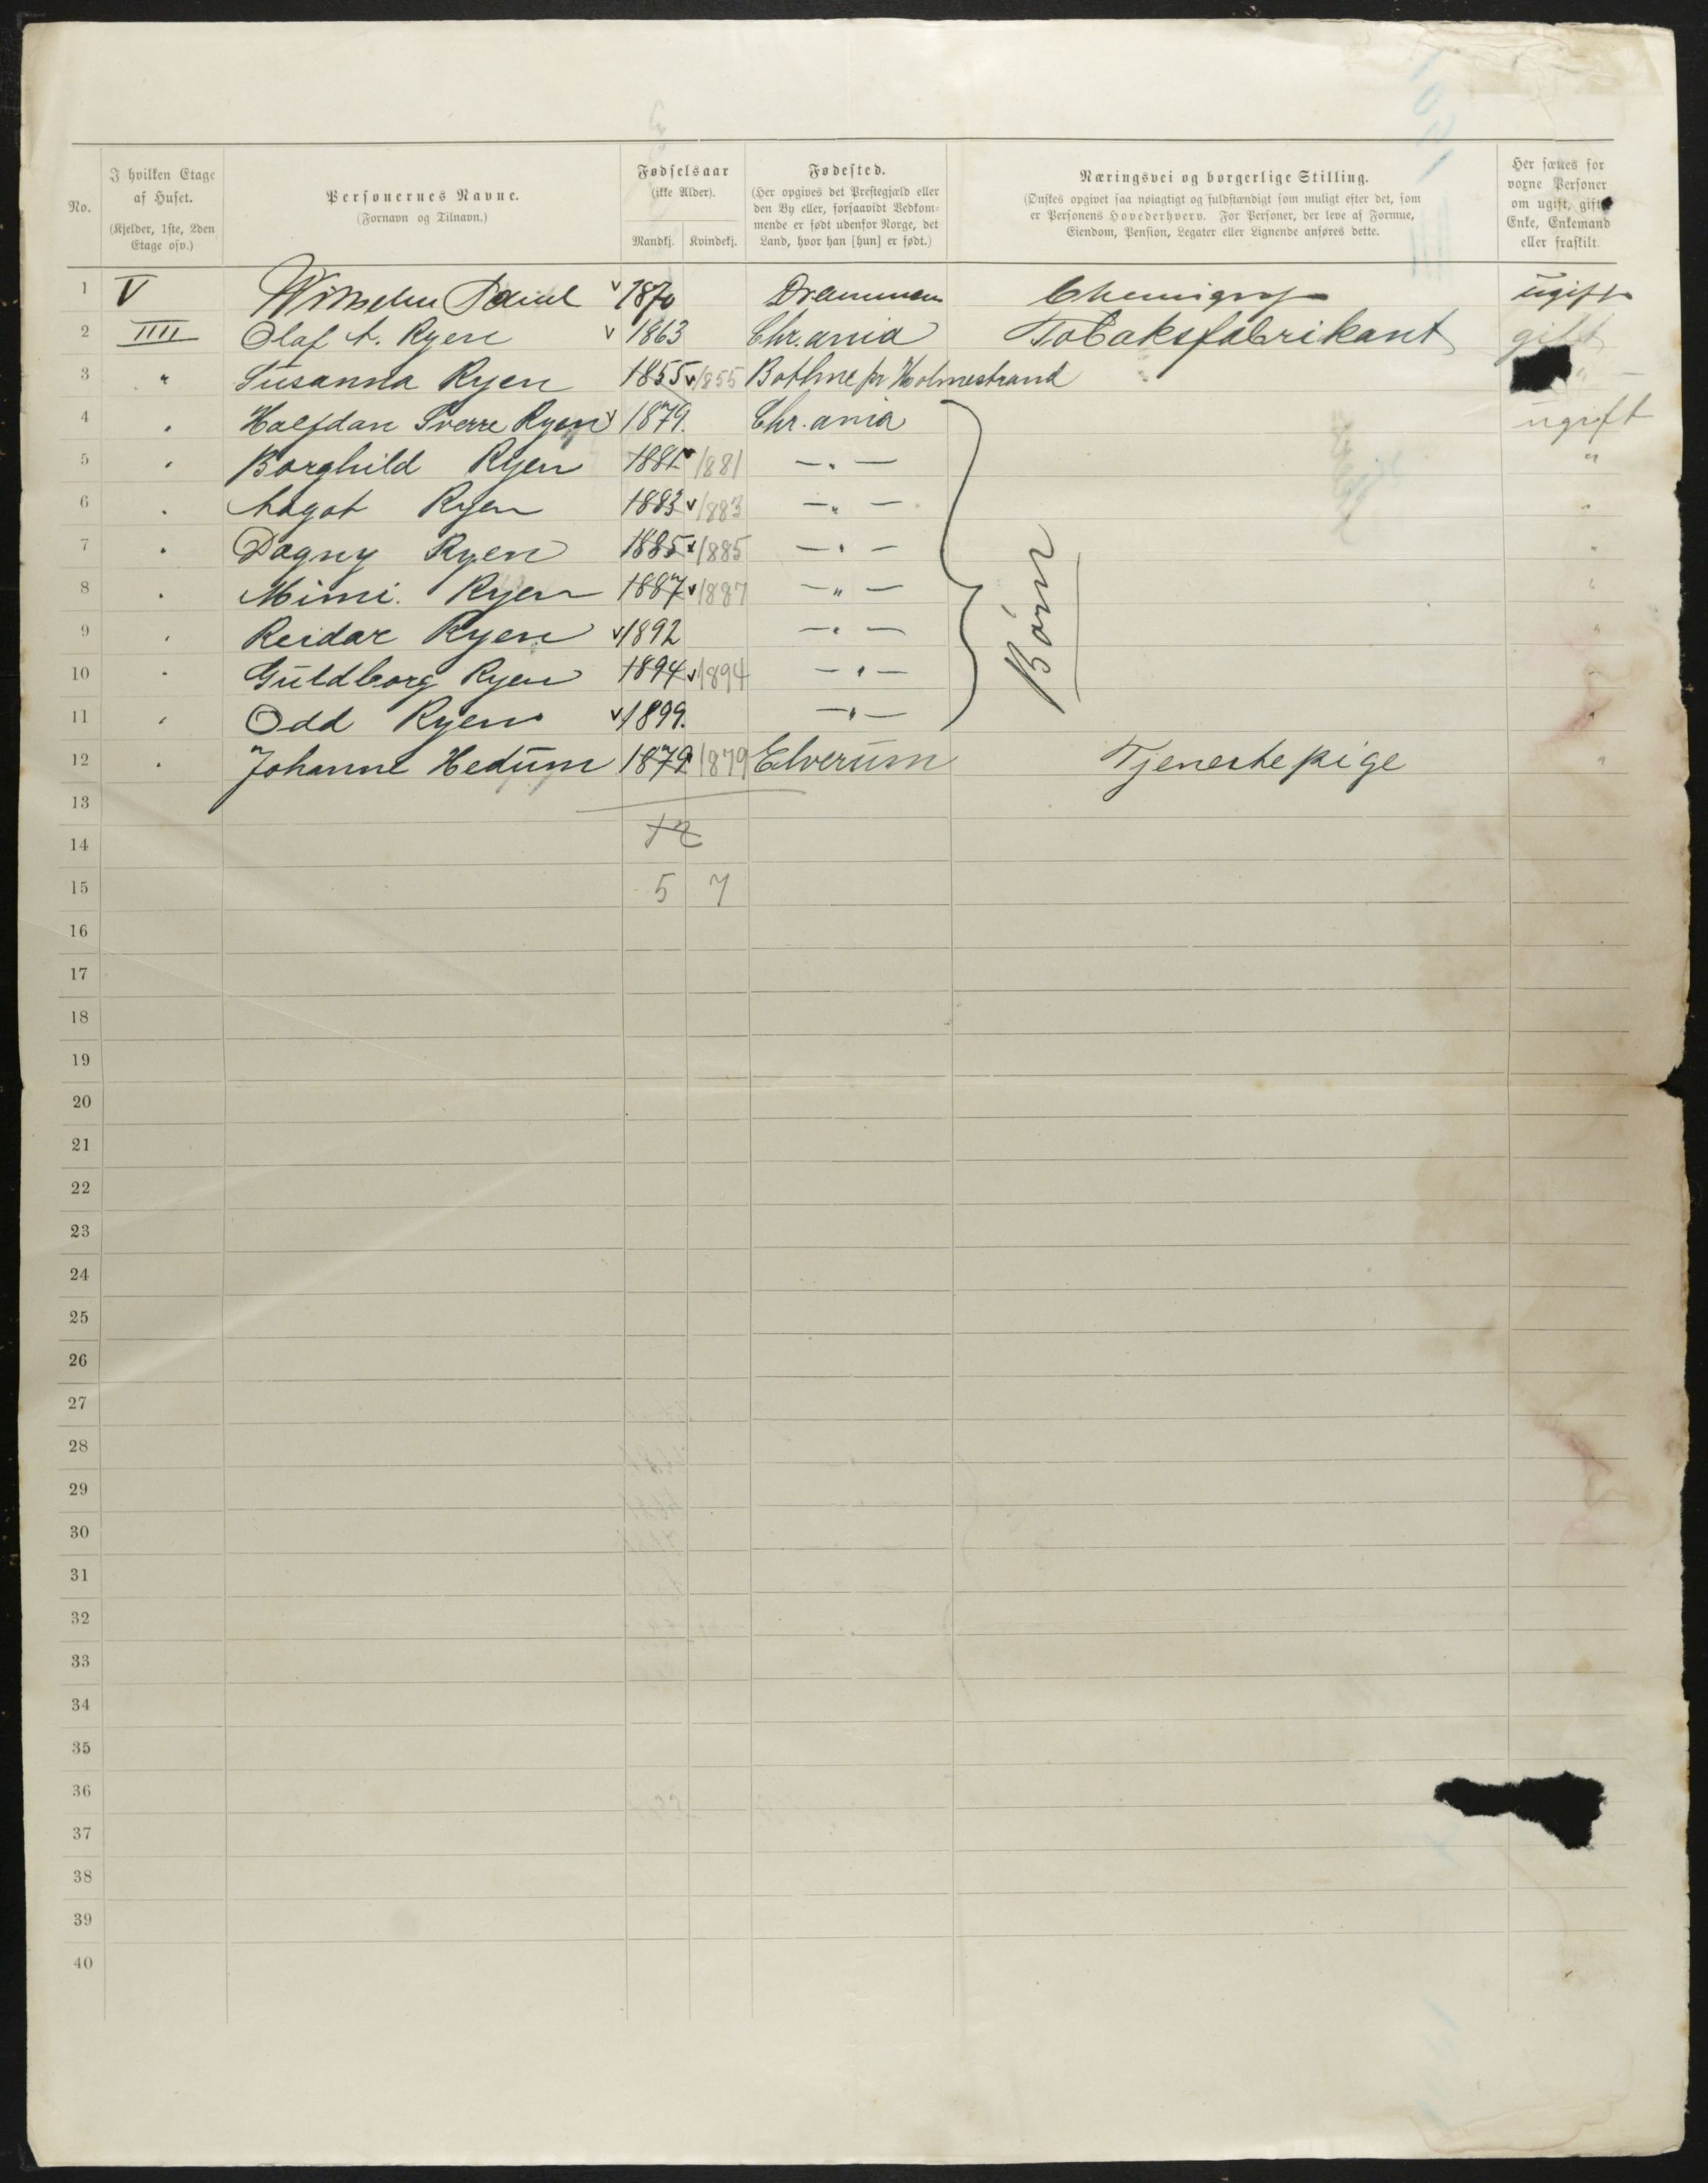 No.
I hvilken Etage af Huset.
(Kjelder, 1ste, 2den Etage osv.)
Personernes Navne.
(Fornavn og Tilnavn.)
Fødselsaar
(ikke Alder).
Mandkj. Kvindekj.
Fødested.
(Her opgives det Prestegjæld eller
den By eller, forsaavidt Vedkom-
mende er født udenfor Norge, det
Land, hvor han [hun] er født.)
Næringsvei og borgerlige Stilling.
(Ønskes opgivet saa nøiagtigt og fuldstændigt som muligt efter det, som
er Personens Hovederhverv. For Personer, der leve af Formue,
Eiendom, Pension, Legater eller Lignende anføres dette.
Her sættes for
voxne Personer
om ugift, gift,
Enke, Enkemand
eller fraskilt.
1 V Wilhelm 1870 Drammen Chemigraf ugift
2 IIII Olaf A. Ryen v 1863 Chr.ania Tobaksfabrikant gift
3 " Susanna Ryen 1855 v 1855 Bothne pr Holmestrand " —
4 " Halfdan Sverre Ryen v 1879. Chr.ania ugift
5 " Borghild Ryen 1881 v 1881 — " — "
6 " Aagot Ryen 1883 v 1883 — " — "
7 " Dagny Ryen 1885 v 1885 — " — "
8 " Mimi. Ryen 1887 v 1887 — " — "
9 " Reidar Ryen v 1892 — " — "
10 " Guldborg Ryen 1894 v 1894 — " — "
11 " Odd Ryen v 1899. — " — "
Børn
12 " Johanne Hedum 1879 1879 Elverum Tjenestepige "
13
14 12
15 5 7
16
17
18
19
20
21
22
23
24
25
26
27
28
29
30
31
32
33
34
35
36
37
38
39
40